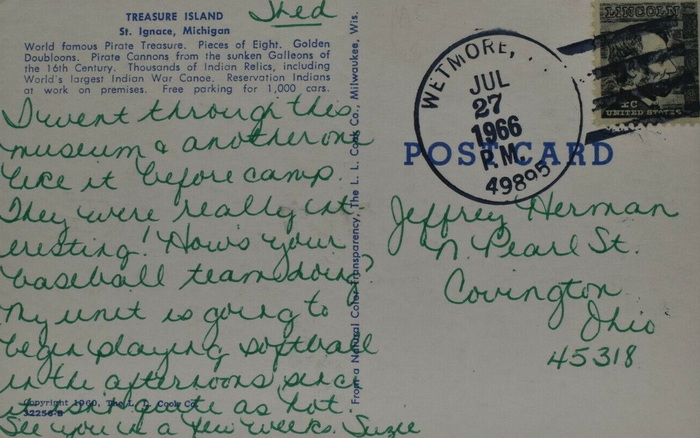 TREASURE ISLAND
St. Ignace, Michigan
World famous Pirate Treasure. Pieces of Eight. Golden
Doubloons. Pirate Cannons from the sunken Galleons of
the 16th Century. Thousands of Indian Relics, including
World's largest Indian War Canoe. Reservation Indians
at work on premises. Free parking for 1,000 cars.
I went through this
museum & another one
like it before camp.
They were really int
eresting! How's your
baseball team doing?
My unit is going to
begin playing softball
in the afternoons since
it isn't quite as hot.
See you in a few weeks. Suzie
Copyright 1960, The L. L. Cook Co.
32256-B
From a Natural Color Transparency, The L. L. Cook Co., Milwaukee, Wis.
POST CARD
WETMORE,
JUL
27
1966
P.M.
49895
LINCOLN
UNITED STATES
Jeffrey Herman
N. Pearl St.
Covington
Ohio
45318